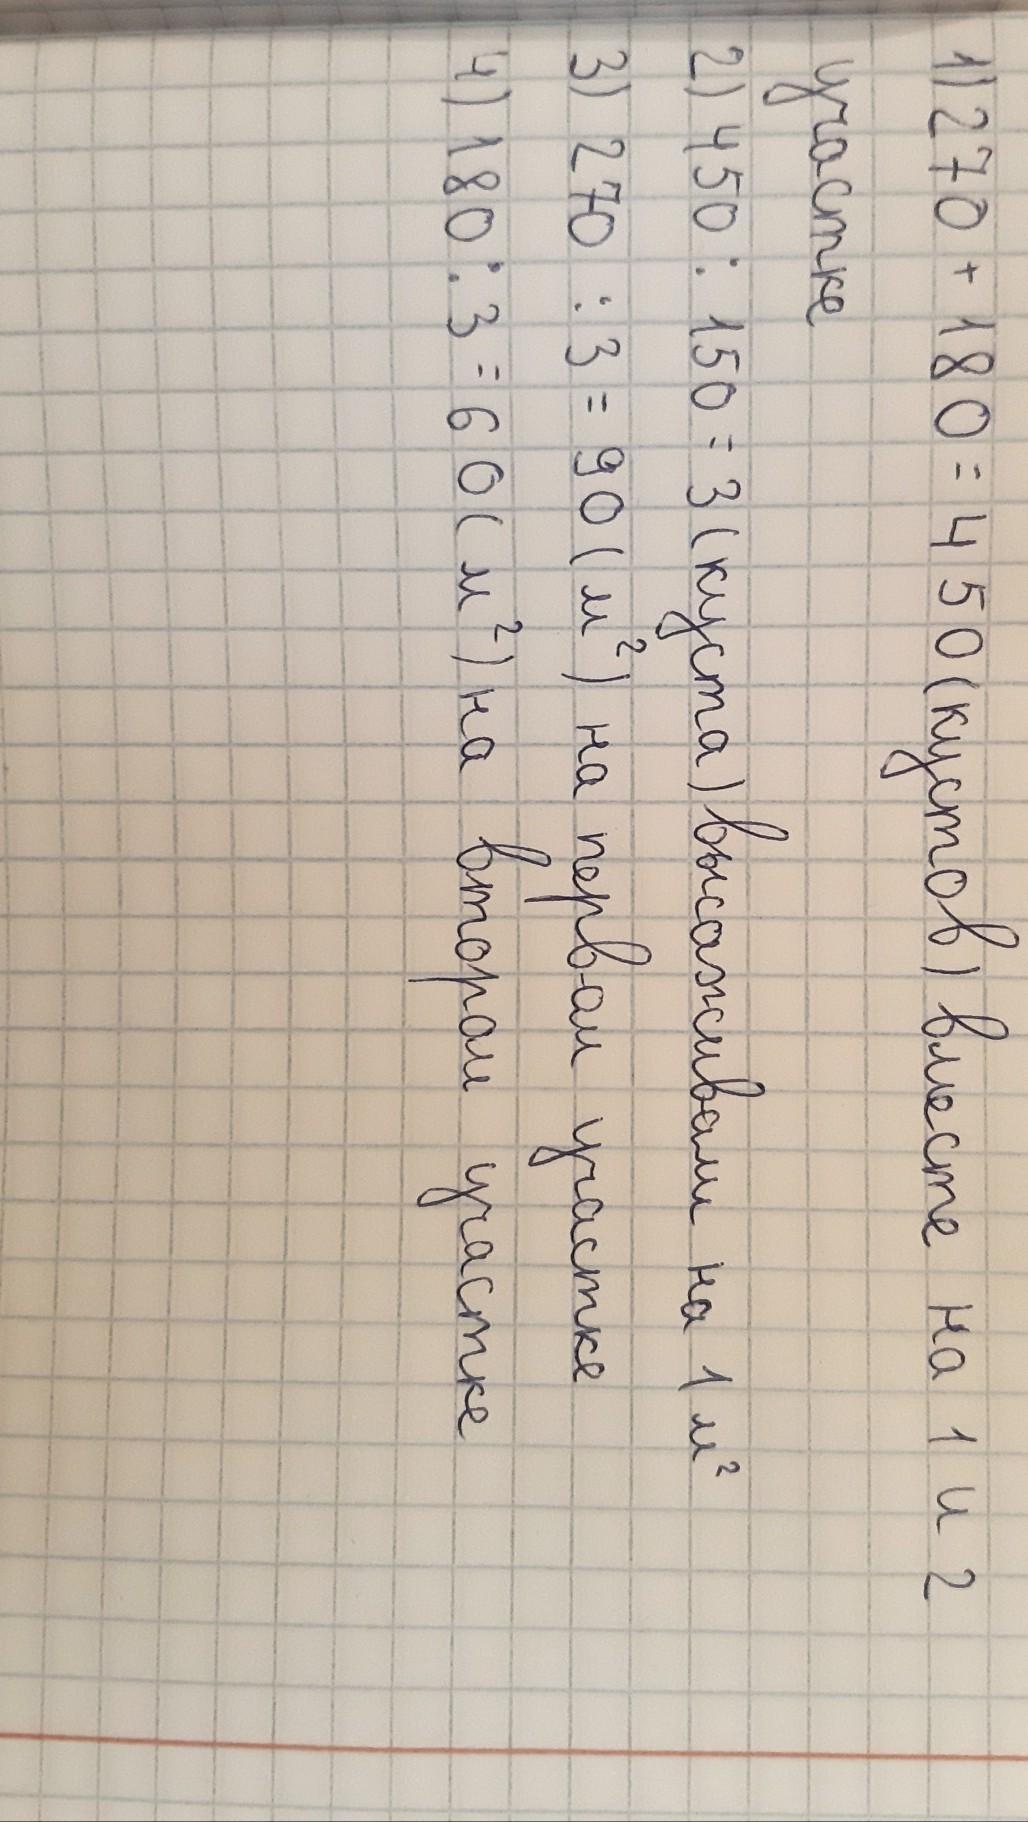 1) 270 + 180 = 450 (кустов) вместе на 1 и 2
участке
2) 450 : 150 = 3 (куста) высаживали на 1 м²
3) 270 : 3 = 90 (м²) на первом участке
4) 180 : 3 = 60 (м²) на втором участке